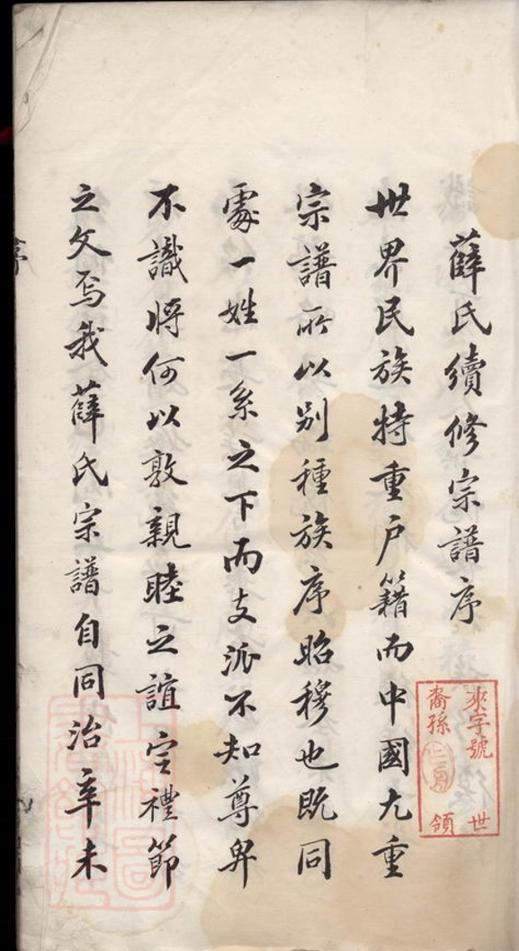 薛氏續修宗譜序
世界民族特重户籍而中國尤重
宗譜所以别種族序昭穆也既同
處一姓一系之下而支派不知尊卑
不識將何以敦親睦之誼定禮節
之文焉我薛氏宗譜自同治辛未
來字號 世
裔孫 領